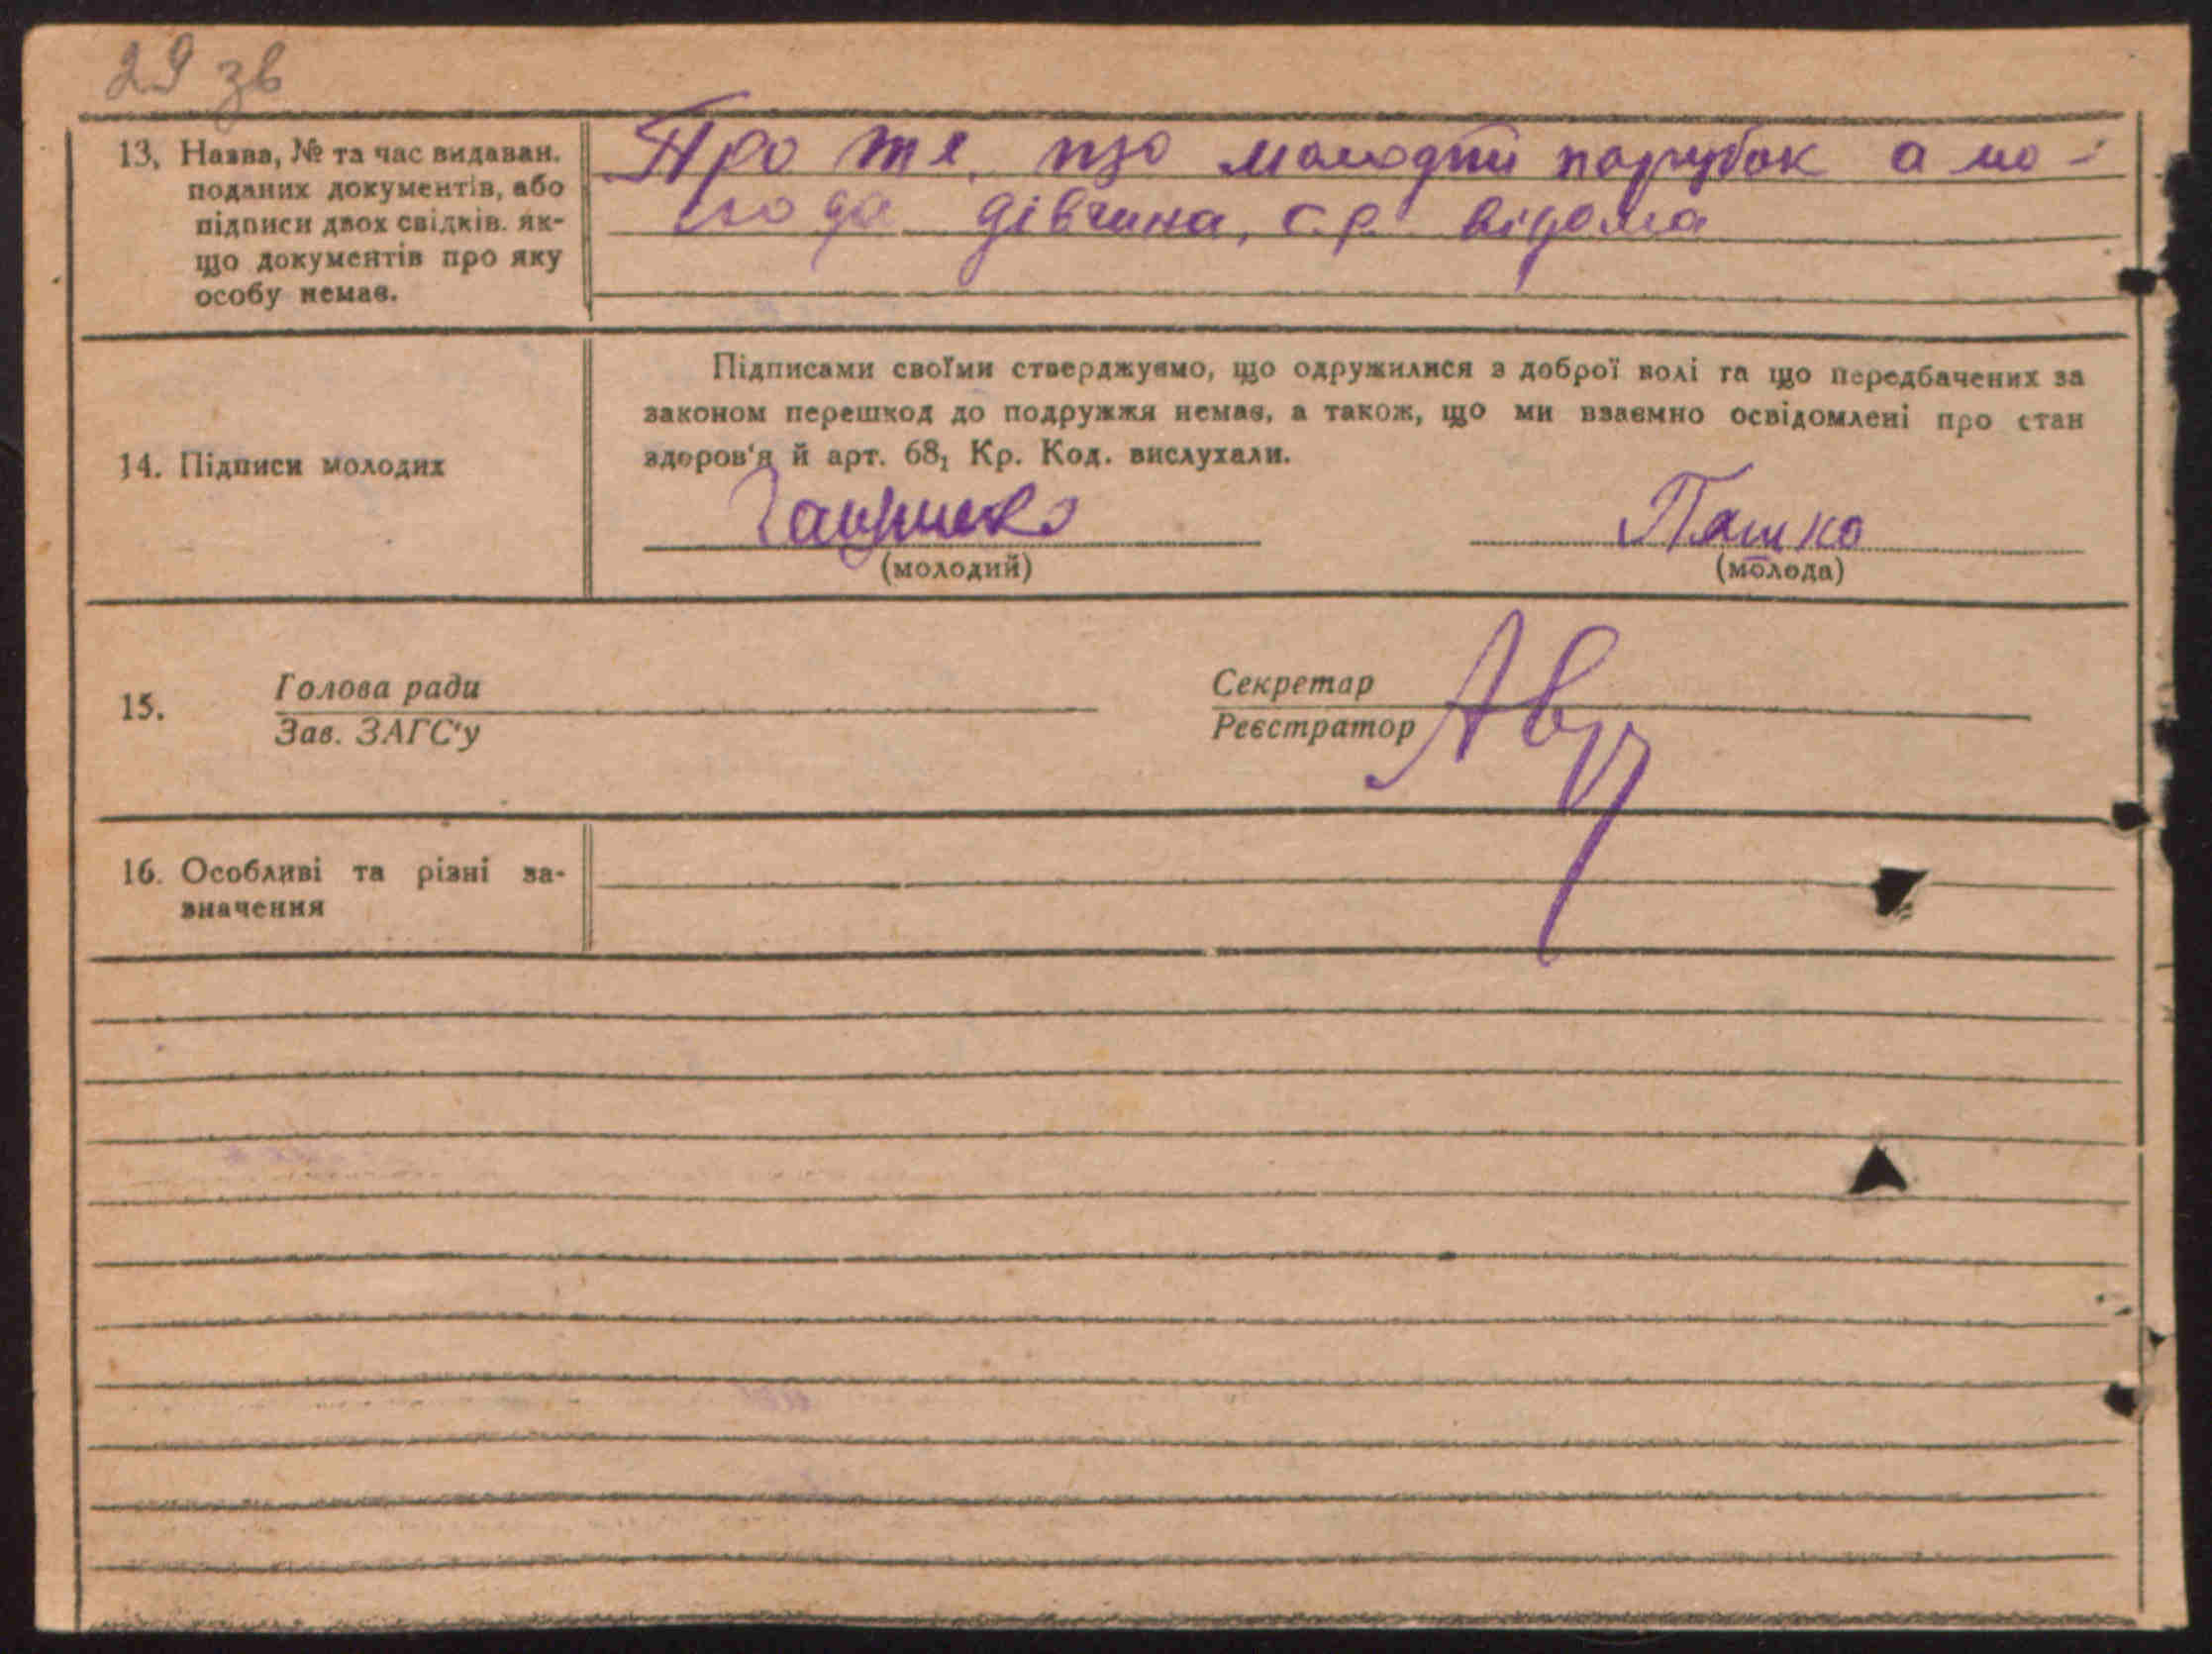 29 зв
13, Назва, № та час видаван.
поданих документів, або
підписи двох свідків. як-
що документів про яку
особу немає.
Про те, що молодий парубок а мо-
лода дівчина, с.р. відомо
Підписами своїми стверджуємо, що одружилися з доброї волі та що передбачених за
законом перешкод до подружжя немає, а також, що ми взаємно освідомлені про стан
здоров'я й арт. 68, Кр. Код. вислухали.
14. Підписи молодих
Пашко
(молодий) (молода)
15.
Голова ради
Зав. ЗАГС'у
Секретар
Реєстратор
16. Особливі та різні за-
значення